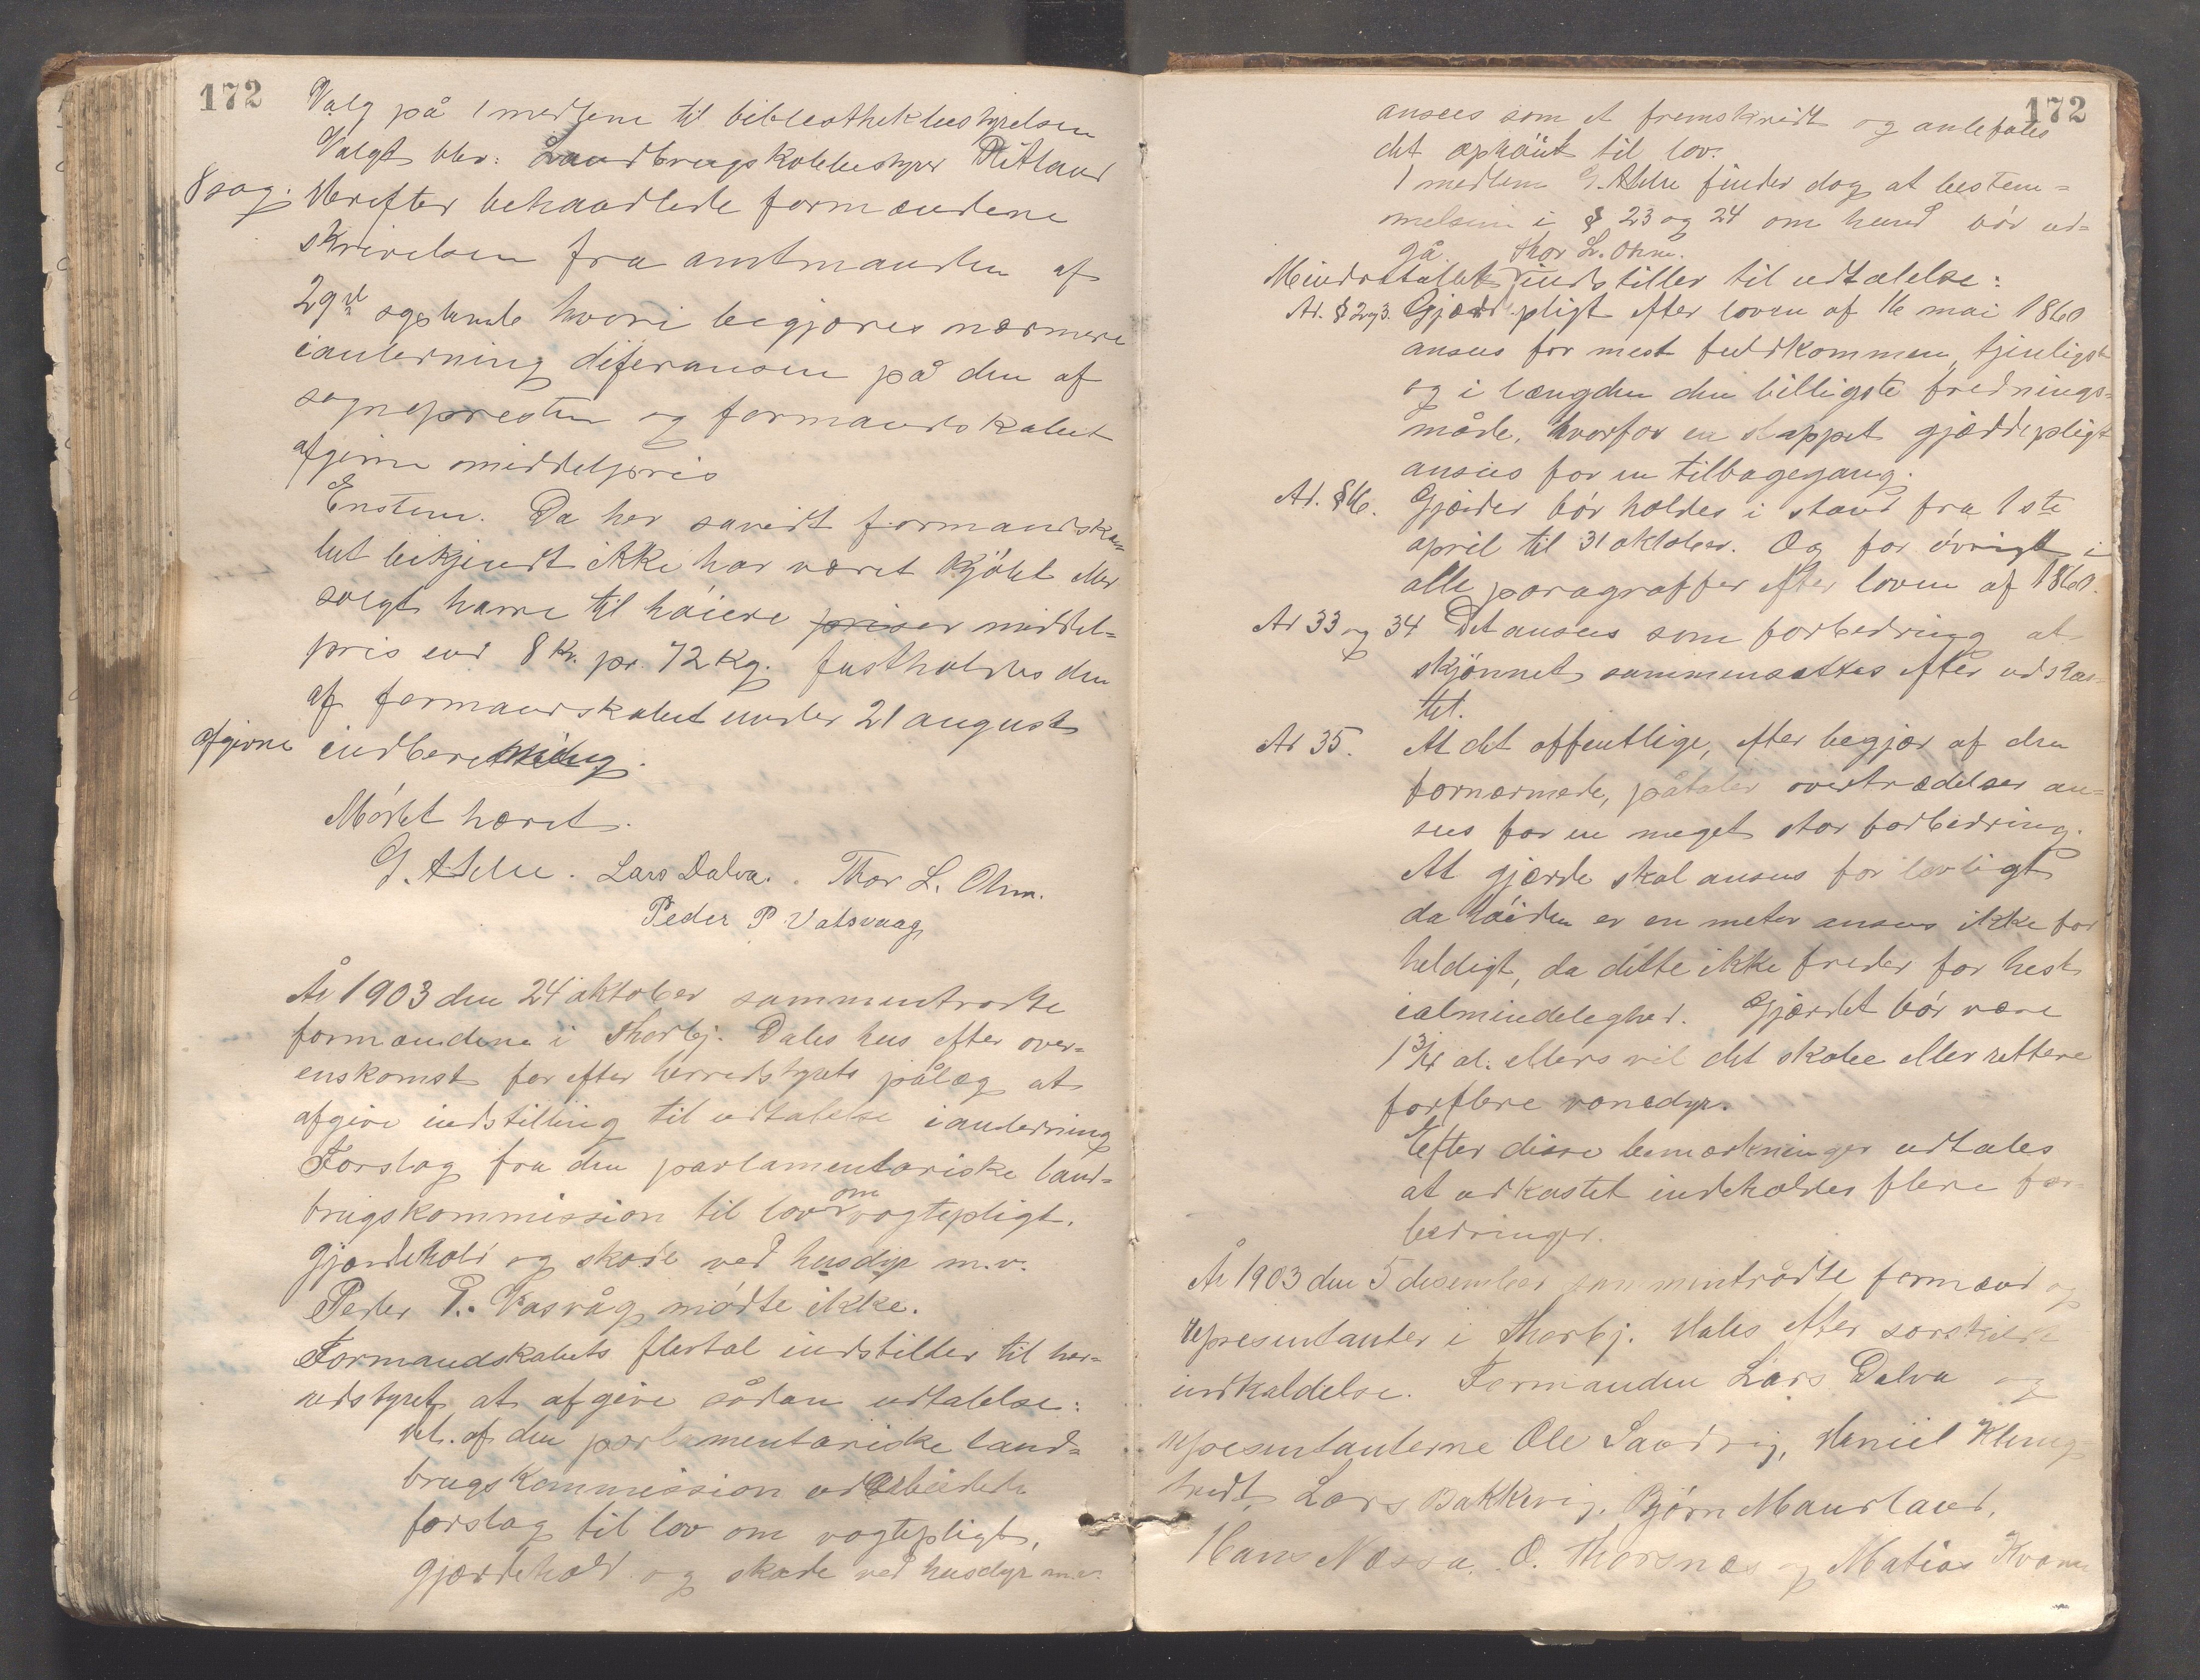 172
Valg på 1 medlem til bibliothekbestyrelsen
Valgt blev: Landbrugskolebestyrer Ritland
8 sag. Herefter behandlede formændene
skrivelsen fra amtmanden af
29de september hvori begjæres nærmere
i anledning diferansen på den af
sognepresten og formandskabet
afgivne middelpris
Enstem. Da her såvidt formandska=
bet bekjendt ikke har været kjöbt eller
solgt havre til höiere priser middel=
pris end 8 Kr. pr. 72 Kg. fastholdes den
af formandskabet under 21 august
afgivne indberetning.
Mödet hævet.
Lars Dalva. Thor L. Ohm.
Peder P Vatsvaag
År 1903 den 24 oktober sammentrådte
formændene i Thorbj. Dales hus efter over=
enskomst for efter herredstyrets pålæg at
afgive indstilling til udtalelse i anledning
Forslag fra den parlamentariske land=
brugskommission til lov om vogtepligt,
gjærdehold og skade ved husdyr m.v.
Peder P. Vasvåg mödte ikke.
Formandskabets flertal indstiller til her=
redstyret at afgive sådan udtalelse:
Det af den parlamentariske land=
brugskommission udarbeidede
forslag til lov om vogtepligt,
gjærdehold og skade ved husdyr m.v.
172
ansees som et fremskridt og anbefales
det ophöiet til lov.
1 medlem finder dog at bestem=
melsen i § 23 og 24 om hund bör ud=
gå. Thor L. Ohm.
Mindretallet indstiller til udtalelse:
Ad. § 2 og 3. Gjærdepligt efter loven af 16 mai 1860
ansees for mest fuldkommen, tjenligst
og i længden den billigste frednings=
måde, hvorfor en slappet gjærdepligt
ansees for en tilbagegang.
Ad. § 6. Gjærder bör holdes i stand fra 1ste
april til 31 oktober. Og for övrigt i
alle paragraffer efter loven af 1860.
Ad 33 og 34 Det ansees som forbedring at
skjönnet sammensættes efter udkas=
tet.
Ad 35. At det offentlige, efter begjær af den
fornærmede, påtaler overtrædelser an=
sees for en meget stor forbedring.
At gjærde skal ansees for lovligt
da höiden er en meter ansees ikke for
heldigt, da dette ikke freder for hest
i almindelighed. Gjærdet bör være
1 3/4 al. ellers vil det skabe eller rettere
forflere vanedyr.
Efter disse bemærkninger udtales
at udkastet indeholder flere for=
bedringer.
År 1903 den 5 desember sammentrådte formænd og
representanter i Thorbj. Dales efter særskildt
indkaldelse. Formanden Lars Dalva og
representanterne Ole Sandvig,
Lars Bakkevig, Björn Maurland,
Hans Næssa, O. Thorsnæs og Matias Kvam